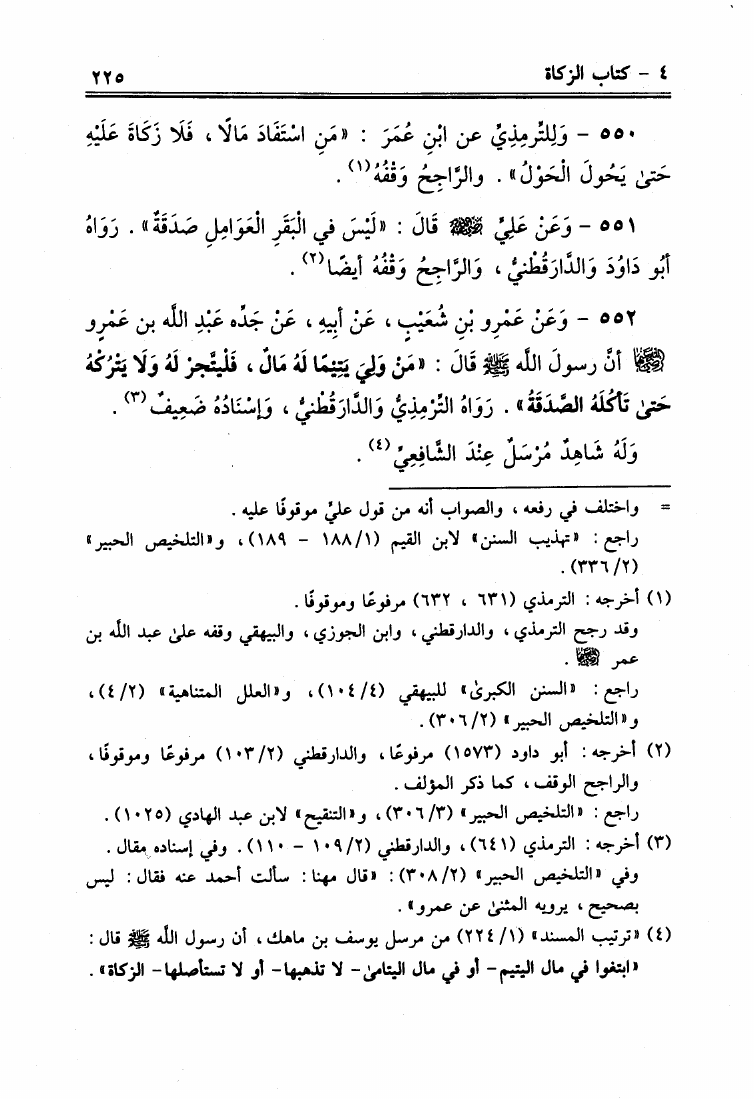 ٤ - كتاب الزكاة ٢٢٥
٥٥٠ - وَلِلتِّرمِذِيِّ عن ابْنِ عُمَرَ : «مَنِ اسْتَفَادَ مَالًا ، فَلَا زَكَاةَ عَلَيْهِ
حَتىٰ يَحُولَ الْحَوْلُ» . والرَّاجِحُ وَقْفُهُ(١) .
٥٥١ - وَعَنْ عَلِيٍّ ﵁ قَالَ : «لَيْسَ في الْبَقَرِ الْعَوَامِلِ صَدَقَةٌ» . رَوَاهُ
أبُو دَاوُدَ وَالدَّارَقُطْنيُّ ، وَالرَّاجِحُ وَقْفُهُ أيضًا(٢) .
٥٥٢ - وَعَنْ عَمْرِو بْنِ شُعَيْبٍ ، عَنْ أبِيهِ ، عَنْ جَدِّه عَبْدِ اللَّه بن عَمْرٍو
﵄ أنَّ رسولَ اللَّه ﷺ قَالَ : «مَنْ وَلِيَ يَتِيْمًا لَهُ مَالٌ ، فَلْيتَّجرْ لَهُ وَلَا يَتْرُكْهُ
حَتىٰ تَأكُلَهُ الصَّدَقَةُ» . رَوَاهُ التِّرْمِذِيُّ وَالدَّارَقُطْنيُّ ، وَإسْنَادُهُ ضَعِيفٌ(٣) .
وَلَهُ شَاهِدٌ مُرْسَلٌ عِنْدَ الشَّافِعِيِّ(٤) .
= واختلف في رفعه ، والصواب أنه من قول عليٍّ موقوفًا عليه .
راجع : «تهذيب السنن» لابن القيم (١/ ١٨٨ - ١٨٩) ، و«التلخيص الحبير»
(٢/ ٣٣٦) .
(١) أخرجه : الترمذي (٦٣١ ، ٦٣٢) مرفوعًا وموقوفًا .
وقد رجح الترمذي ، والدارقطني ، وابن الجوزي ، والبيهقي وقفه علىٰ عبد اللَّه بن
عمر ﵄ .
راجع : «السنن الكبرىٰ» للبيهقي (٤/ ١٠٤) ، و«العلل المتناهية» (٢/ ٤) ،
و«التلخيص الحبير» (٢/ ٣٠٦) .
(٢) أخرجه : أبو داود (١٥٧٣) مرفوعًا ، والدارقطني (٢/ ١٠٣) مرفوعًا وموقوفًا ،
والراجح الوقف ، كما ذكر المؤلف .
راجع : «التلخيص الحبير» (٣/ ٣٠٦) ، و«التنقيح» لابن عبد الهادي (١٠٢٥) .
(٣) أخرجه : الترمذي (٦٤١) ، والدارقطني (٢/ ١٠٩ - ١١٠) . وفي إسناده مقال .
وفي «التلخيص الحبير» (٢/ ٣٠٨) : «قال مهنا : سألت أحمد عنه فقال : ليس
بصحيح ، يرويه المثنىٰ عن عمرو» .
(٤) «ترتيب المسند» (١/ ٢٢٤) من مرسل يوسف بن ماهك ، أن رسول اللَّه ﷺ قال :
«ابتغوا في مال اليتيم - أو في مال اليتامىٰ - لا تذهبها - أو لا تستأصلها - الزكاة» .